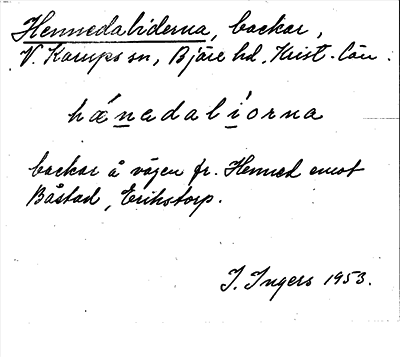 Hennedaliderna, backar,
V. Karups sn, Bjäre hd, Krist. län.
hǽnadalíorna
backar å vägen fr. Henned emot
Båstad, Erikstorp.
I. Ingers 1953.